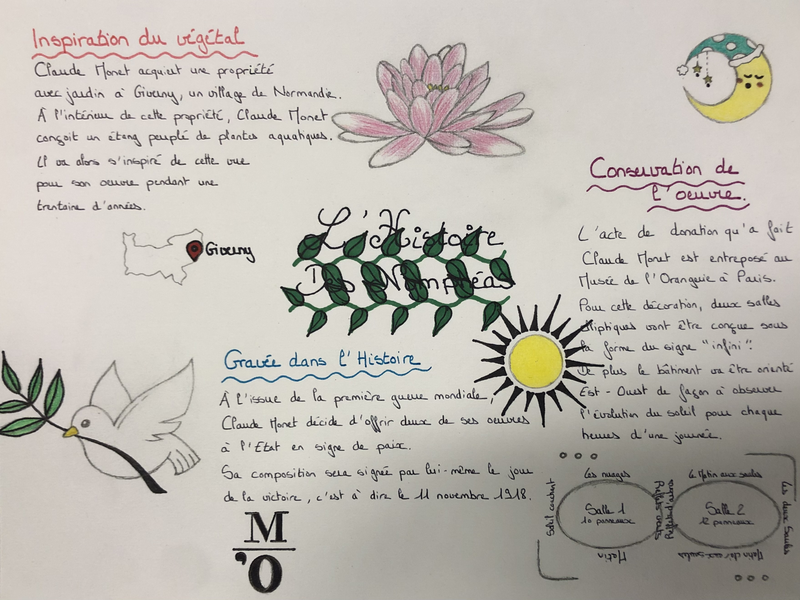 Inspiration du végétal
Claude Monet acquiert une propriété
avec jardin à Giverny, un village de Normandie.
À l'intérieur de cette propriété, Claude Monet
conçoit un étang peuplé de plantes aquatiques.
Il va alors s'inspiré de cette vue
pour son oeuvre pendant une
trentaine d'années.
Giverny
L'Histoire
Des Nymphéas
Gravée dans l'Histoire
À l'issue de la première guerre mondiale,
Claude Monet décide d'offrir deux de ses oeuvres
à l'Etat en signe de paix.
Sa composition sera signée par lui-même le jour
de la victoire, c'est à dire le 11 novembre 1918.
M
'O
Conservation de
l'oeuvre.
L'acte de donation qu'a fait
Claude Monet est entreposé au
Musée de l'Orangerie à Paris.
Pour cette décoration, deux salles
elliptiques vont être conçue sous
la forme du signe "infini".
De plus le bâtiment va être orienté
Est - Ouest de façon à observer
l'évolution du soleil pour chaque
heures d'une journée.
Les nuages
Soleil couchant
Salle 1
10 panneaux
Reflets verts
Reflets d'arbres
Matin
Le Matin aux saules
Salle 2
12 panneaux
Les deux Saules
Matin clair aux saules